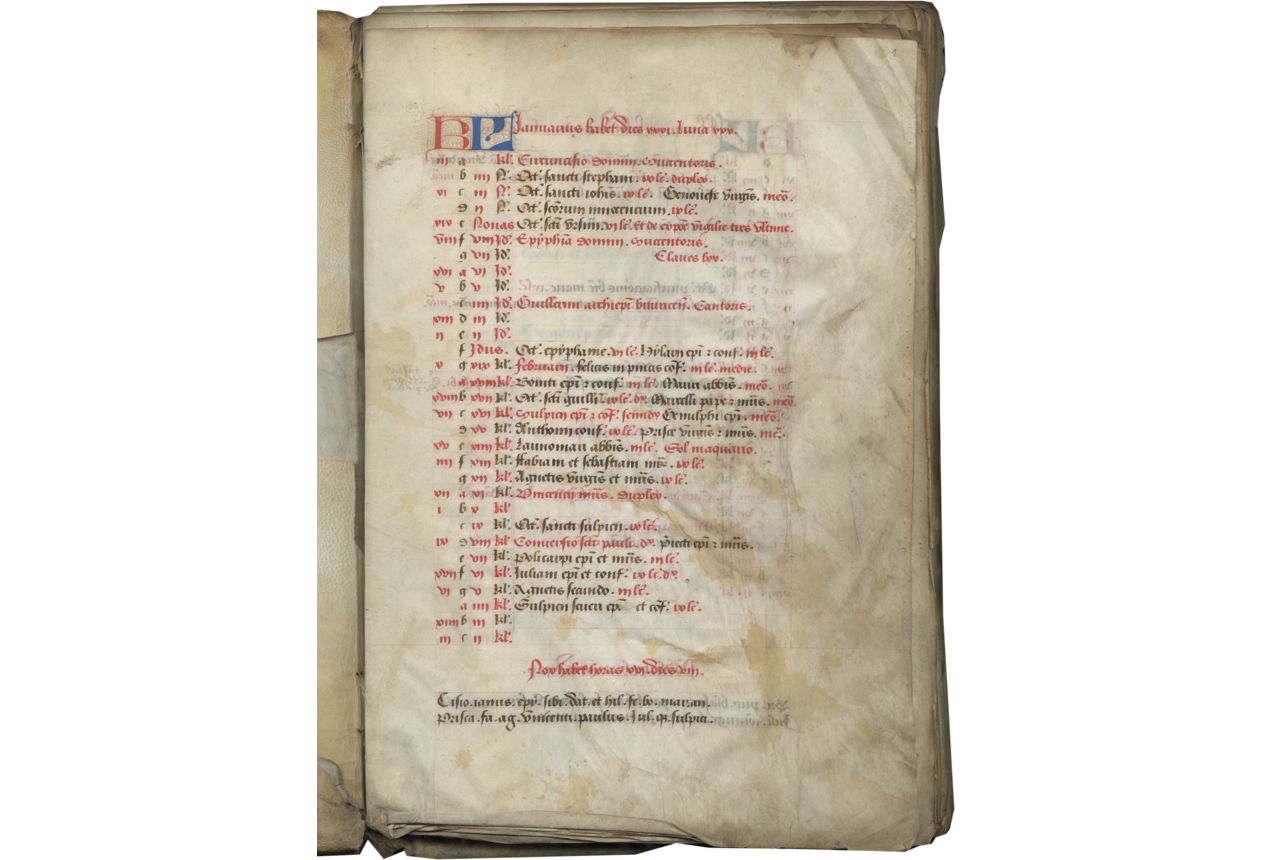 1
KL Januarius habet dies xxxi. luna xxx.
iii a kl. Circuncisio domini. cuncentoris.
b iiii N. Oct. sancti stephani. ix lc. duplex.
xi c iii N. Oct. sancti iohis. ix lc. Genovefe virginis. meo.
d ii N. Oct. scorum innocencium. ix lc.
xix e Nonas Oct. scti ursini. ix lc. Et de
viii f viii Id. Epyphia domini.
g vii Id. Claves lxx.
xvi a vi Id.
v b v Id.
c iiii Id. Guillermi archiepi bituricen. Cantoris.
xiii d iii Id.
ii e ii Id.
f Idus. Oct. epyphanie. ix lc. hylarii epi et conf. iii lc.
x g xix kl. februarii. felicis in pincis cof. iii lc. medie.
a xviii kl. Boniti epi et conf. iii lc. Mauri abbis. meo.
xviii b xvii kl. Oct. scti guilli. ix lc. dx. Marcelli pape et mris. meo.
vii c xvi kl. Sulpicii epi et cof. semidx Genulphi epi. meo.
d xv kl. Anthonii conf. ix lc. Prisce virgis et mris. meo.
xv e xiiii kl. Launomari abbis. iii lc. Sol in aquario.
iiii f xiii kl. ffabiani et sebastiani mr. ix lc.
g xii kl. Agnetis virgis et mris. ix lc.
xii a xi kl. Vincencii mris. duplex.
i b x kl.
c ix kl. Oct. sancti sulpicii. ix lc.
ix d viii kl. Conversio scti pauli. dx. Priecti epi et mris.
e vii kl. Policarpi epi et mris. iii lc.
xvii f vi kl. Iuliani epi et conf. ix lc. dx.
vi g v kl. Agnetis secundo. iii lc.
a iiii kl. Sulpicii severi epi et cof. ix lc.
xiiii b iii kl.
iii c ii kl.
Nox habet horas xvi. dies viii.
Cisio. ianus. epy. sibi. dat. et hil. fe. bo. mar. an.
Prisca. fa. ag. vincenti. paulus. Iul. q. sulpici.